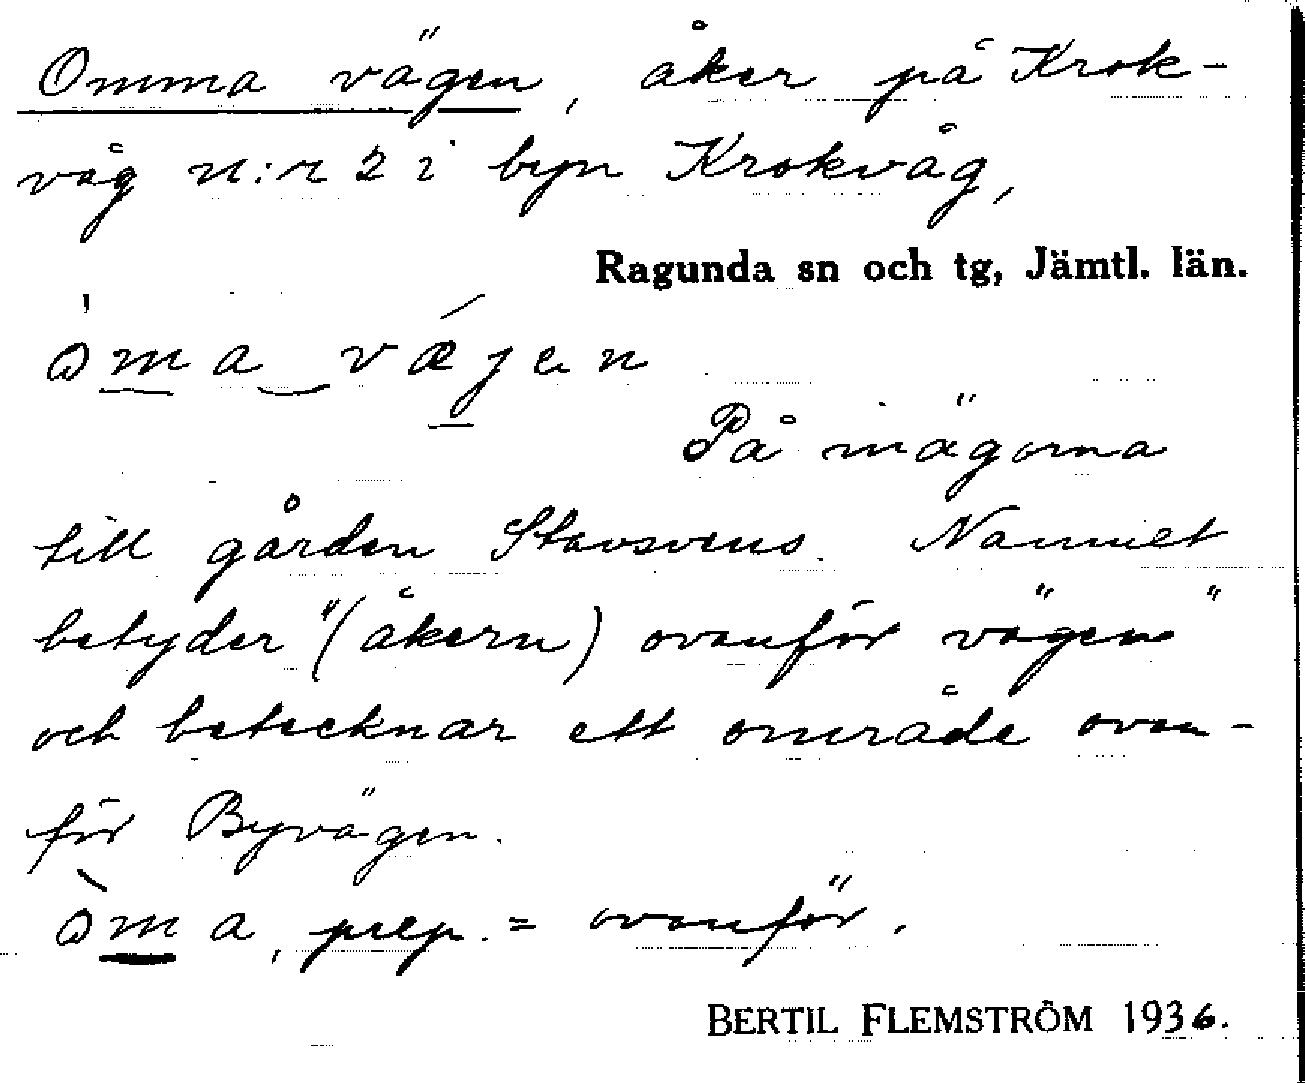 Omma vägen, åker på Krok-
våg n:r 2 i byn Krokvåg,
Ragunda sn och tg, Jämtl. län.
òma vǽjen
På inägorna
till gården Stavsvens. Namnet
betyder "(åkern) ovanför vägen"
och betecknar ett område ovan-
för Byvägen.
òma, prep. = ovanför.
BERTIL FLEMSTRÖM 1936.